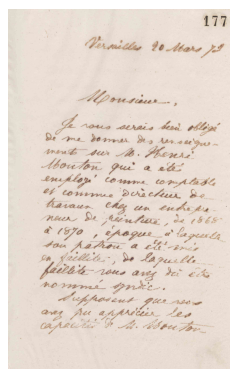 177
Versailles 20 Mars 73
Monsieur,
Je vous serais bien obligé
de me donner des renseigne-
ments sur M. Henri
Mouton qui a été
employé comme comptable
et comme directeur de
travaux chez un entrepre
neur de peinture, de 1868
à 1870, époque à laquelle
son patron a été mis
en faillite, de laquelle
faillite vous avez dû être
nommé syndic.
Supposant que vous
avez pu apprécier les
capacités de M. Mouton